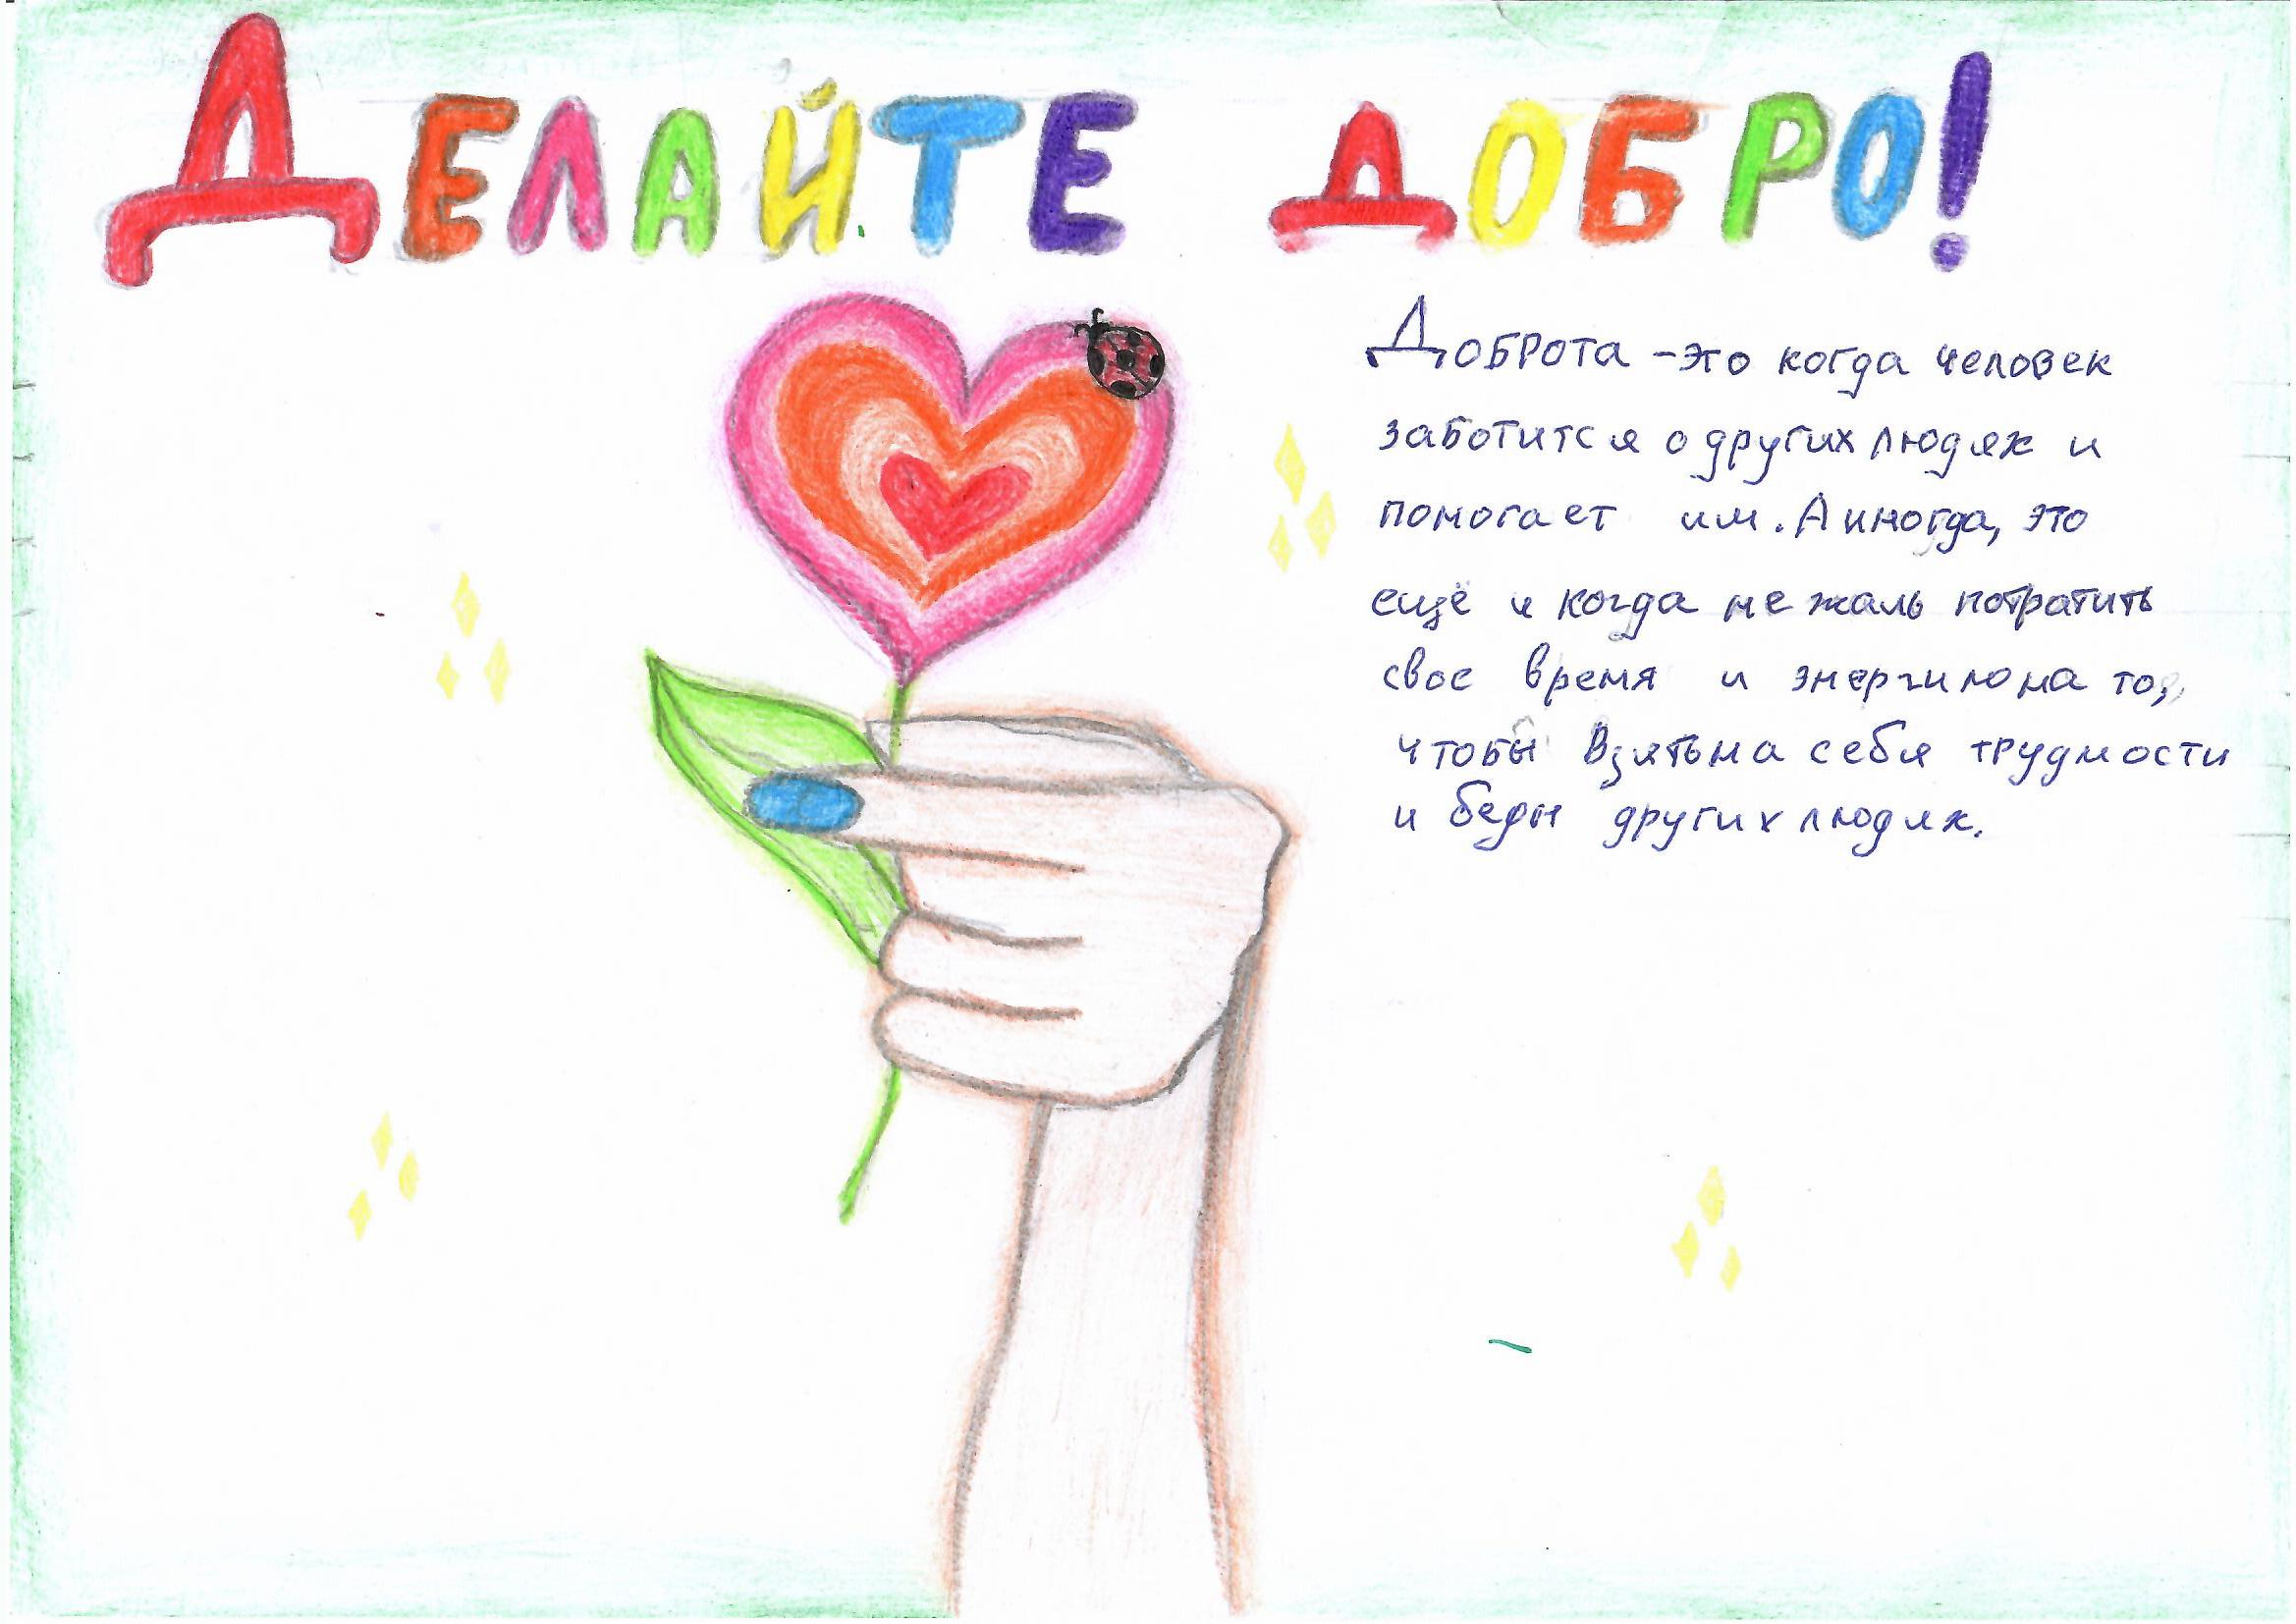 ДЕЛАЙТЕ ДОБРО!
Доброта - это когда человек
заботится о других людях и
помогает им. А иногда, это
ещё и когда не жаль потратить
свое время и энергию на то,
чтобы взять на себя трудности
и беды других людях.